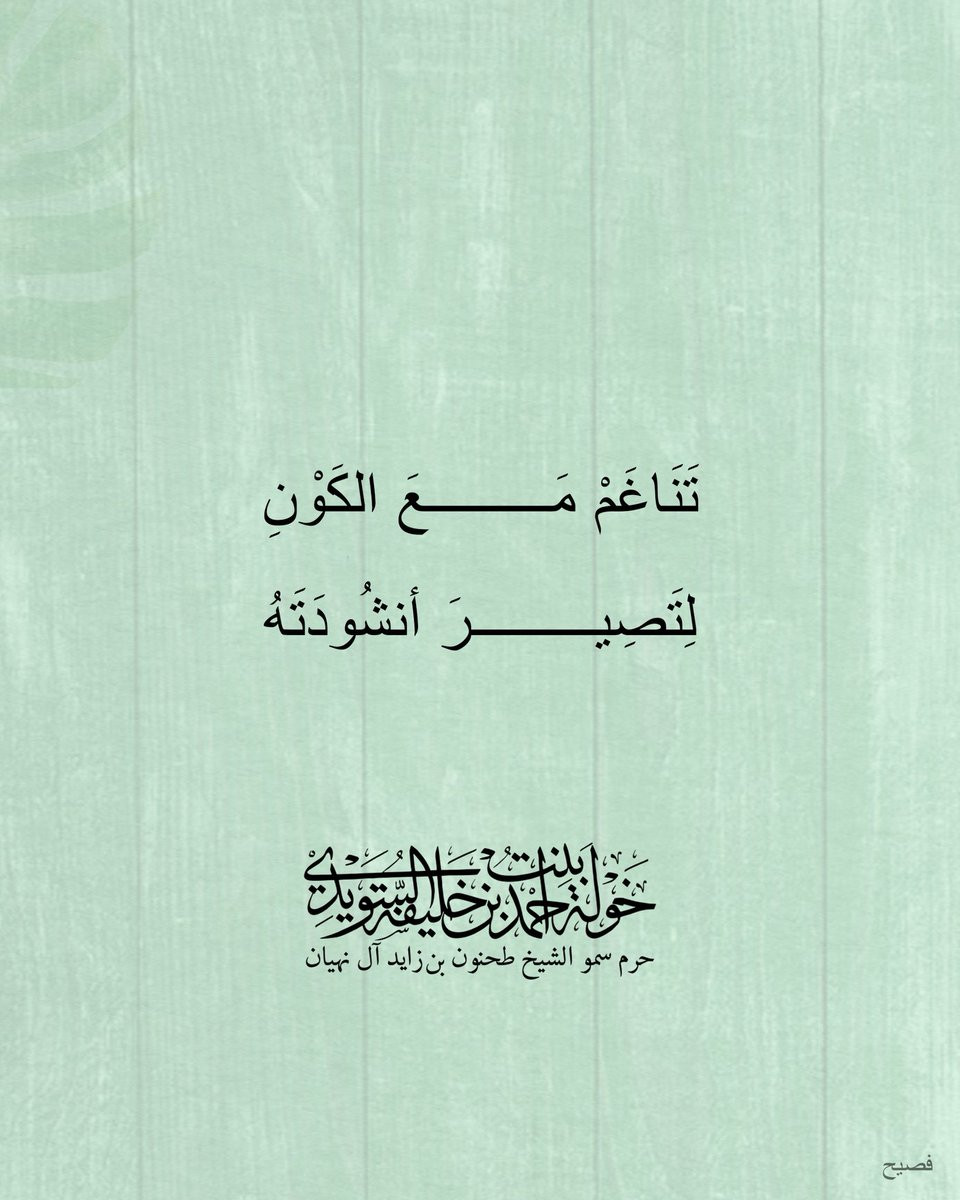 تَنَاغَمْ مَـــــــعَ الكَوْنِ
لِتَصِيـــــــرَ أنشُودَتَهُ
خَوْلَة بِنْت أحمد بن خليفة السّويدي
حرم سمو الشيخ طحنون بن زايد آل نهيان
فصيح